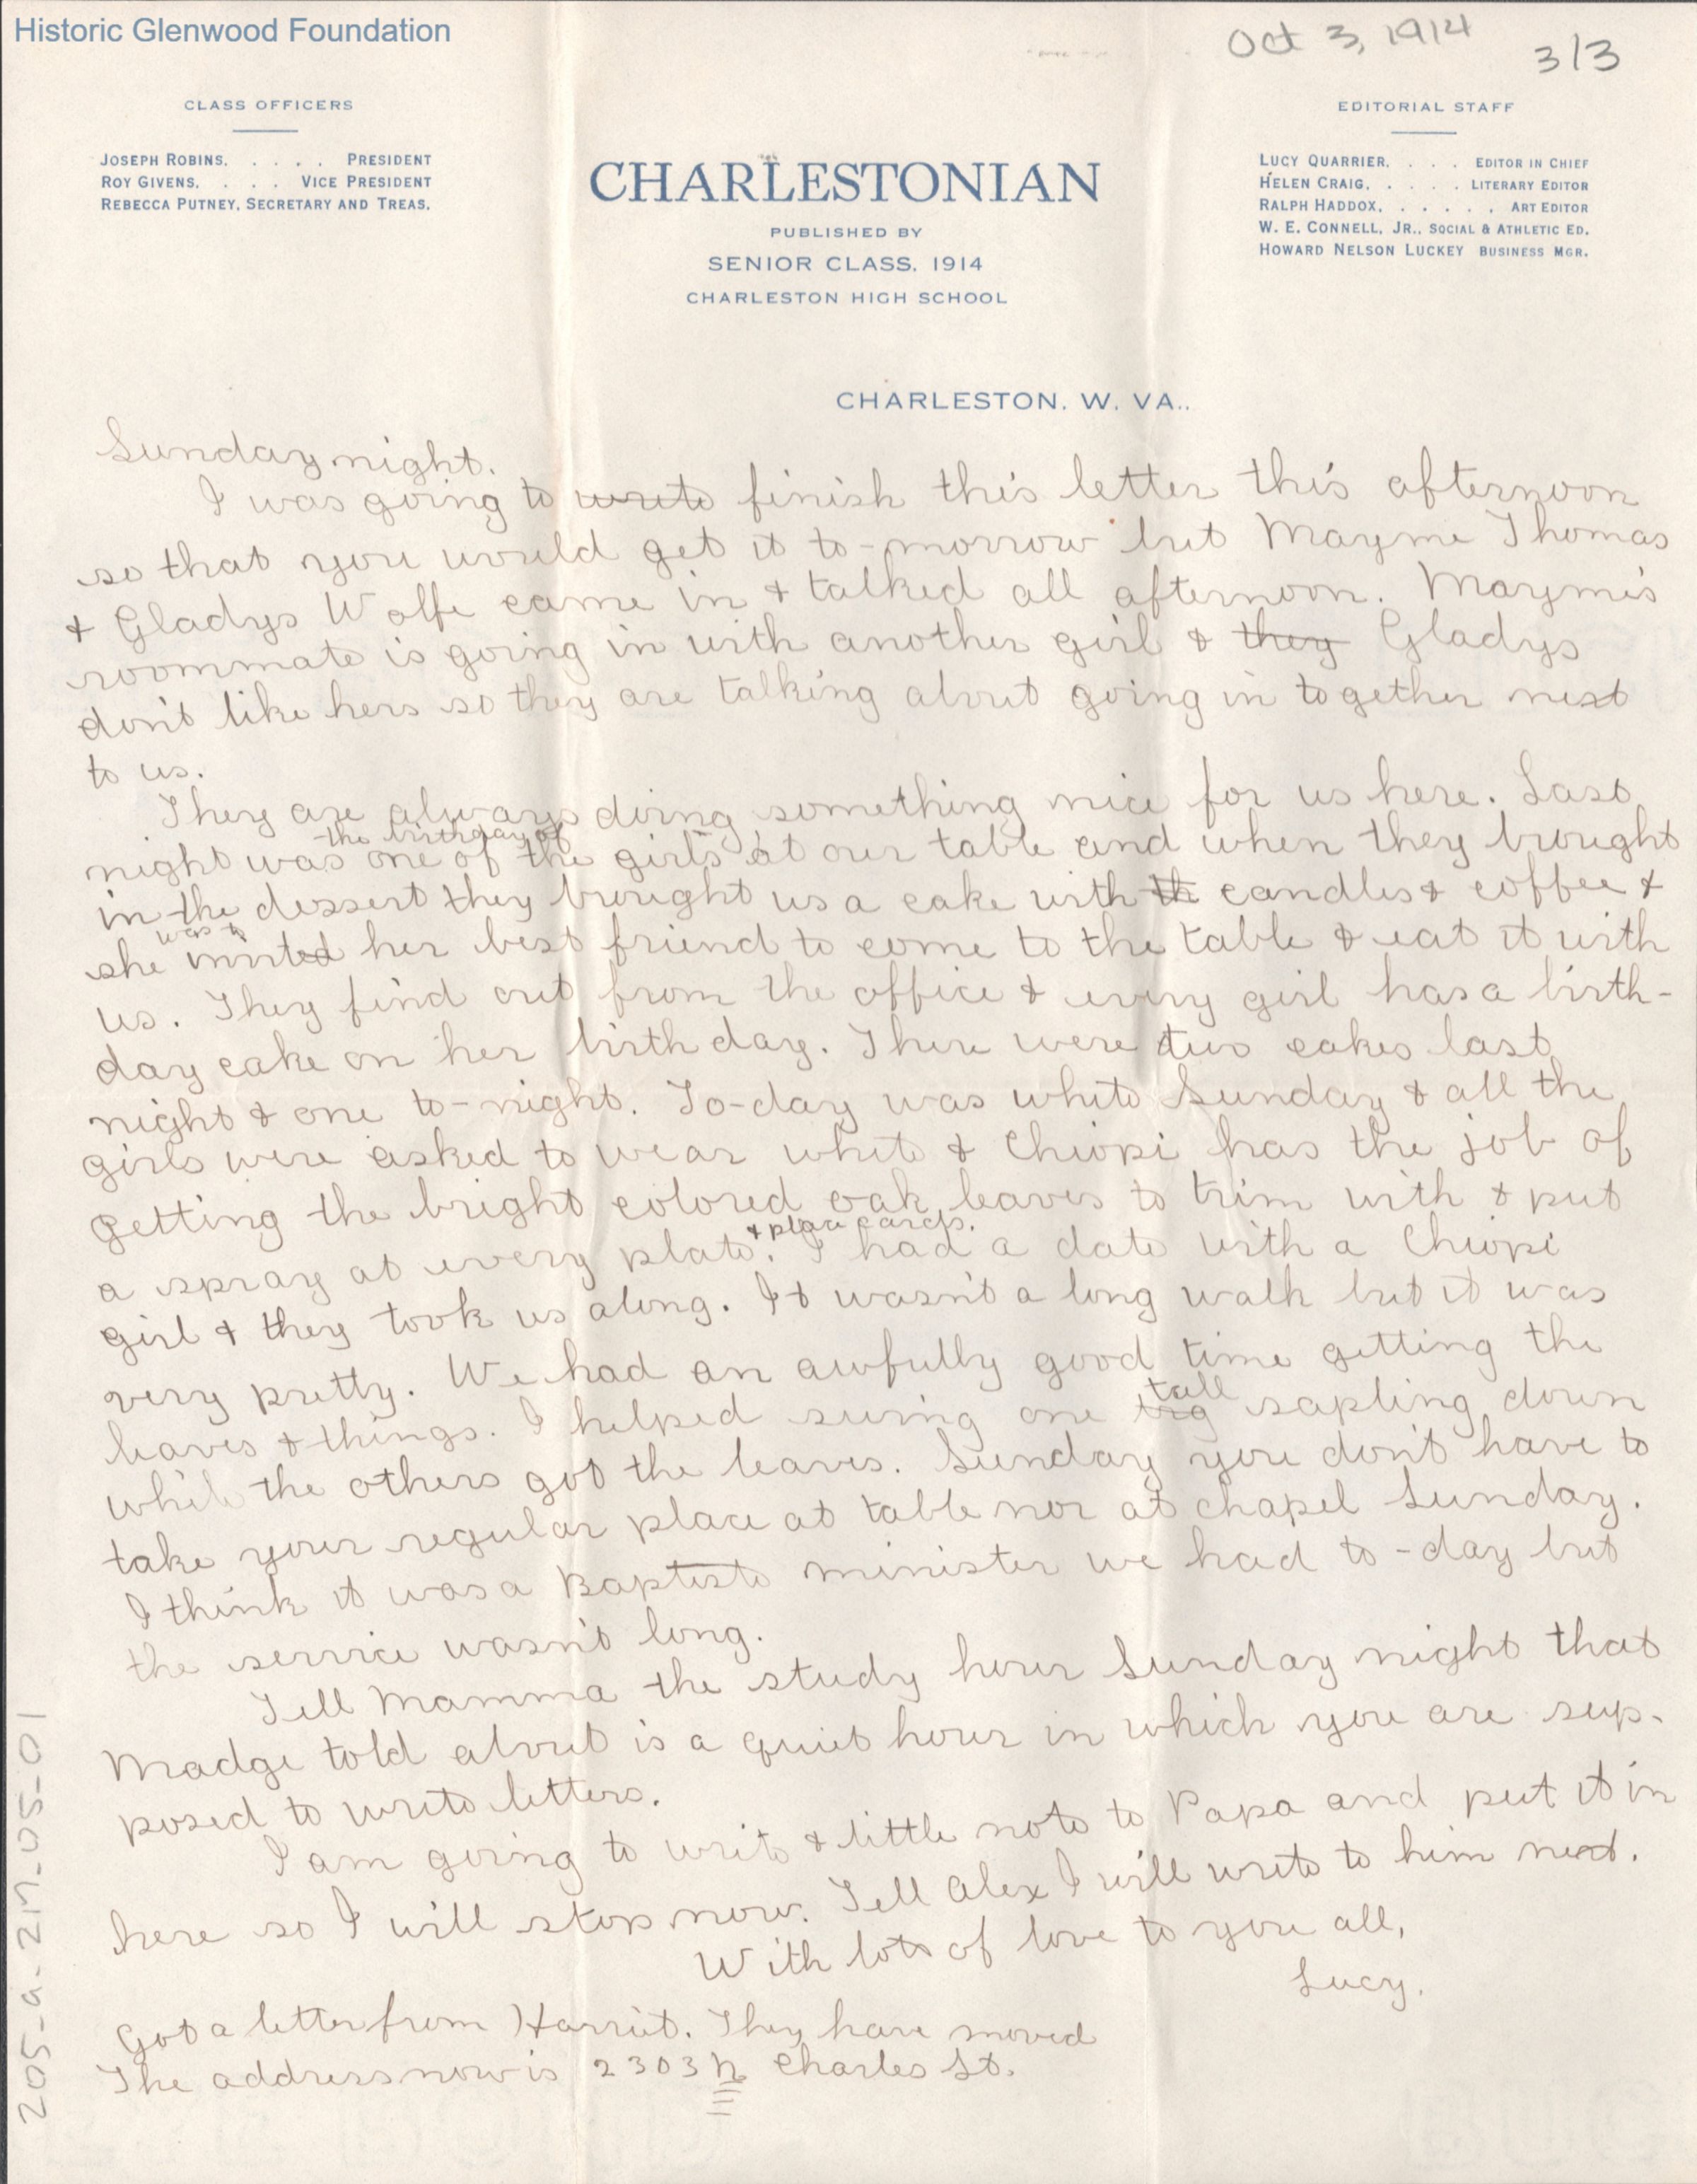 Historic Glenwood Foundation
Oct 3, 1914
3/3
CLASS OFFICERS
JOSEPH ROBINS. . . . . PRESIDENT
ROY GIVENS. . . . VICE PRESIDENT
REBECCA PUTNEY, SECRETARY AND TREAS.
CHARLESTONIAN
PUBLISHED BY
SENIOR CLASS, 1914
CHARLESTON HIGH SCHOOL
EDITORIAL STAFF
LUCY QUARRIER. . . . EDITOR IN CHIEF
HELEN CRAIG. . . . . LITERARY EDITOR
RALPH HADDOX. . . . . . ART EDITOR
W. E. CONNELL, JR.. SOCIAL & ATHLETIC ED.
HOWARD NELSON LUCKEY BUSINESS MGR.
CHARLESTON. W. VA..
Sunday night.
I was going to write finish this letter this afternoon
so that you would get it to-morrow but Mayme Thomas
& Gladys Wolfe came in & talked all afternoon. Mayme's
roommate is going in with another girl & they Gladys
don't like hers so they are talking about going in together next
to us.
They are always doing something nice for us here. Last
the birthday of
night was one of the girls at our table and when they brought
in the dessert they brought us a cake with th candles & coffee &
was to
she invited her best friend to come to the table & eat it with
us. They find out from the office & every girl has a birth-
day cake on her birthday. There were two cakes last
night & one to-night. To-day was white Sunday & all the
girls were asked to wear white & Chiopi has the job of
getting the bright colored oak leaves to trim with & put
& place cards.
a spray at every plate. I had a date with a Chiopi
girl & they took us along. It wasn't a long walk but it was
very pretty. We had an awfully good time getting the
tall
leaves & things. I helped swing one big sapling down
while the others got the leaves. Sunday you don't have to
take your regular place at table nor at chapel Sunday.
I think it was a Baptiste minister we had to-day but
the service wasn't long.
Tell Mamma the study hour Sunday night that
Madge told about is a quiet hour in which you are sup-
posed to write letters.
I am going to write a little note to Papa and put it in
here so I will stop now. Tell Alex I will write to him next.
With lots of love to you all,
Lucy.
Got a letter from Harriet. They have moved
The address now is 2303 N Charles St.
205-a-217-05-01